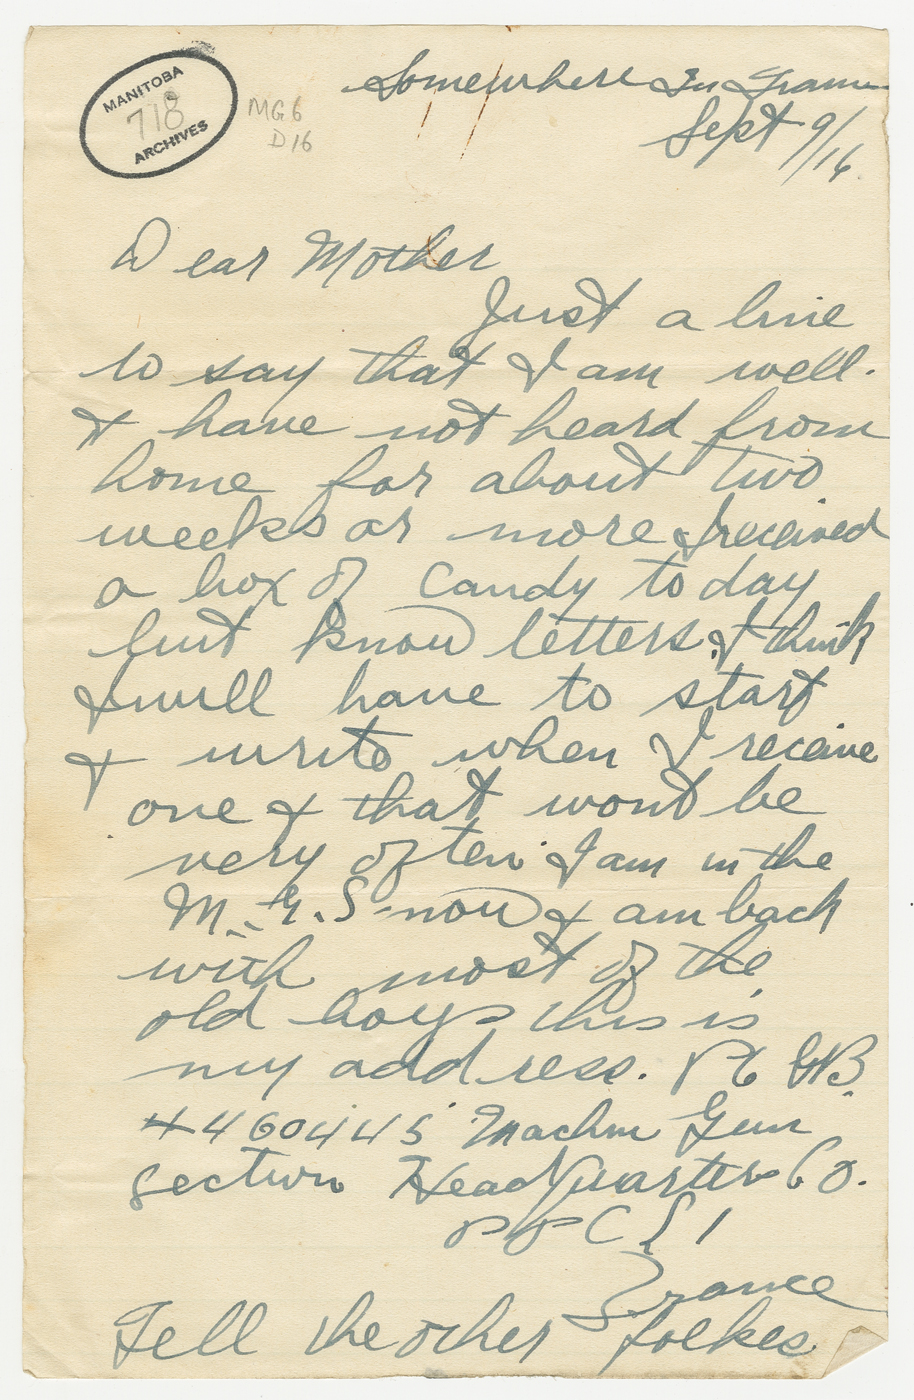 MANITOBA
718
ARCHIVES
MG6
D16
Somewhere In France
Sept 9/16.
Dear Mother
Just a line
to say that I am well.
& have not heard from
home for about two
weeks or more I received
a box of Candy to day
but know letters. I think
I will have to start
& write when I receive
one & that wont be
very often. I am in the
M.G.S. now & am back
with most of the
old boys this is
my address. Pte
#460445 Machin Gun
section HeadQuarters Co.
P P C L I
France
Tell the other folkes